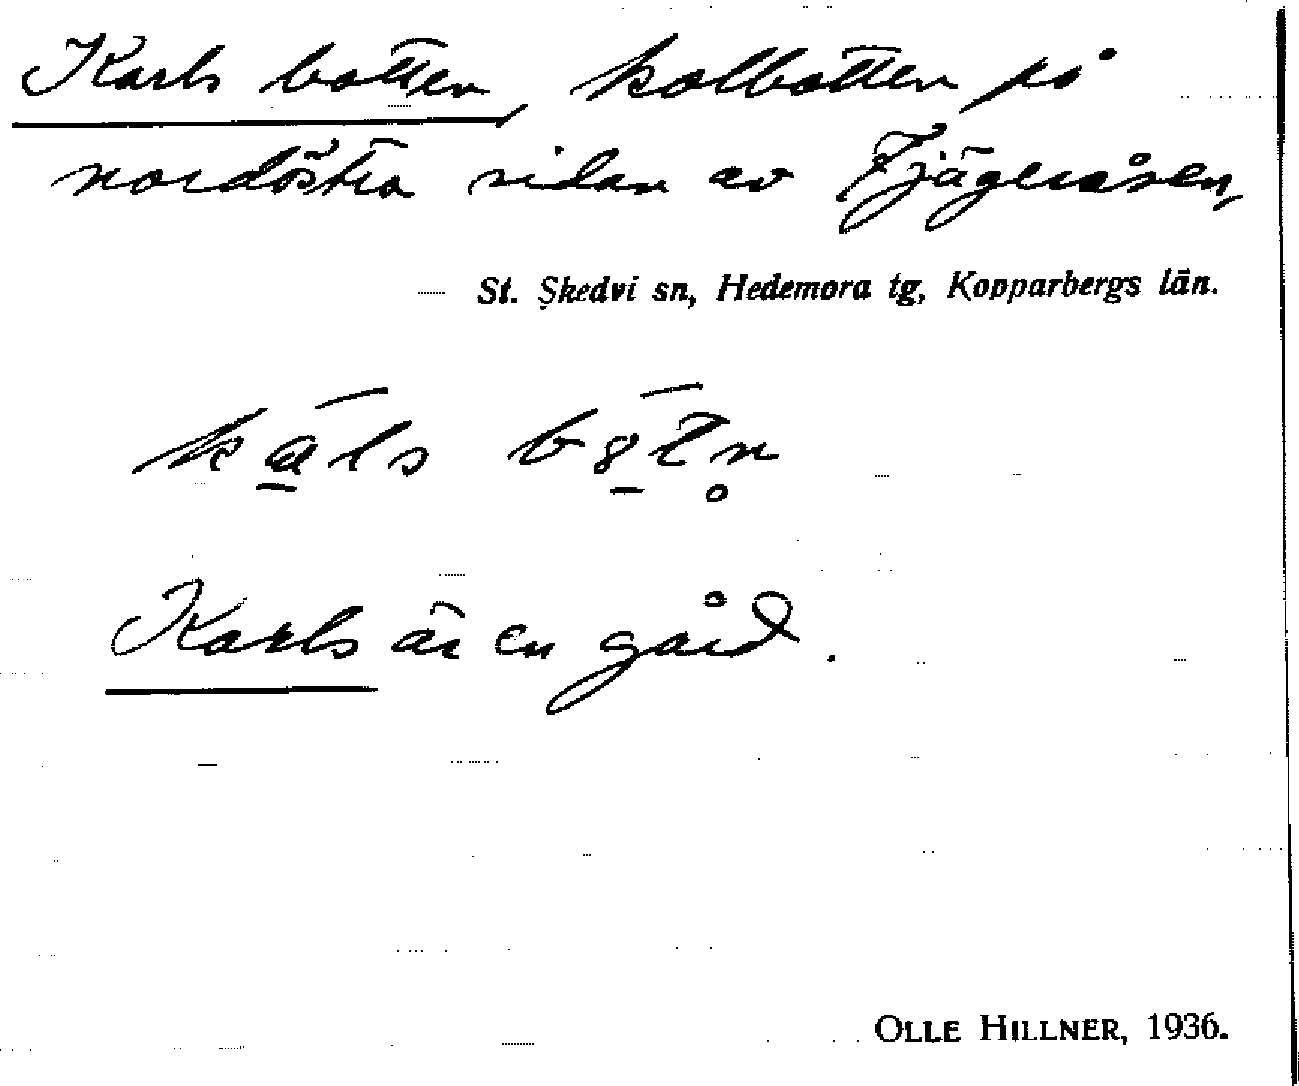 Karls botten, kolbotten på
nordöstra sidan av Tjägeråsen,
St. Skedvi sn, Hedemora tg, Kopparbergs län.
Karls är en gård.
OLLE HILLNER, 1936.